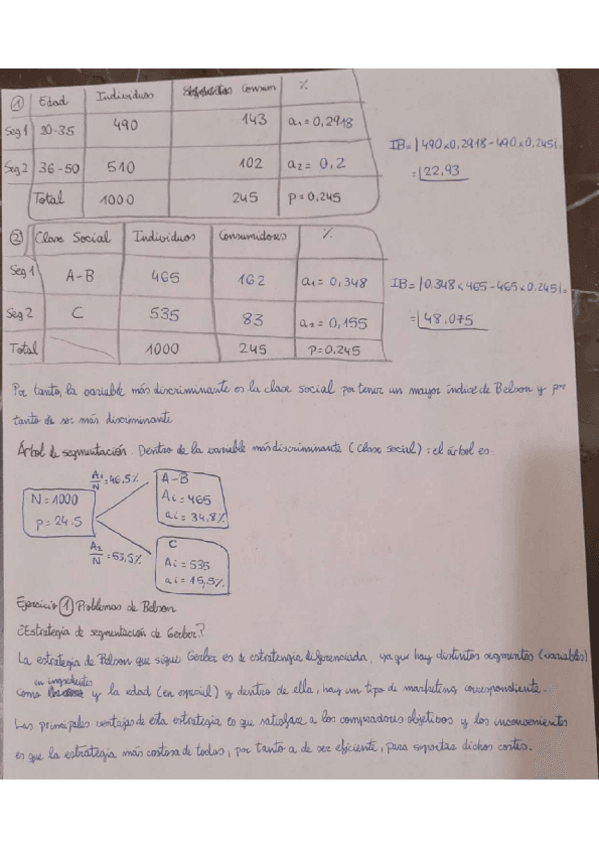 ① Edad Individuos Consum %
Seg 1 20-35 490 143 a1 = 0,2918
IB = | 490 x 0,2918 - 490 x 0,245 | =
Seg 2 36-50 510 102 a2 = 0.2
= 22,93
Total 1000 245 p = 0,245
② Clase Social Individuos Consumidores %
Seg 1 A-B 465 162 a1 = 0,348
IB = | 0.348 x 465 - 465 x 0.245 | =
Seg 2 C 535 83 a2 = 0,155
= 48,075
Total 1000 245 p = 0.245
Por tanto, la variable más discriminante es la clase social por tener un mayor índice de Belson y por
tanto de ser más discriminante.
Árbol de segmentación. Dentro de la variable más discriminante (Clase social): el árbol es:
A1/N = 46,5%
A-B
N = 1000
Ai = 465
p = 24.5
ai = 34,8%
A2/N = 53,5%
C
Ai = 535
ai = 15,5%
Ejercicio ① Problemas de Belson
¿Estrategia de segmentación de Gerber?
La estrategia de Belson que sigue Gerber es de estrategia diferenciada, ya que hay distintos segmentos (variables)
como en ingredientes y la edad (en especial) y dentro de ella, hay un tipo de marketing correspondiente.
Las principales ventajas de esta estrategia es que satisface a los compradores objetivos y los inconvenientes
es que la estrategia más costosa de todas, por tanto a de ser eficiente, para soportar dichos costes.